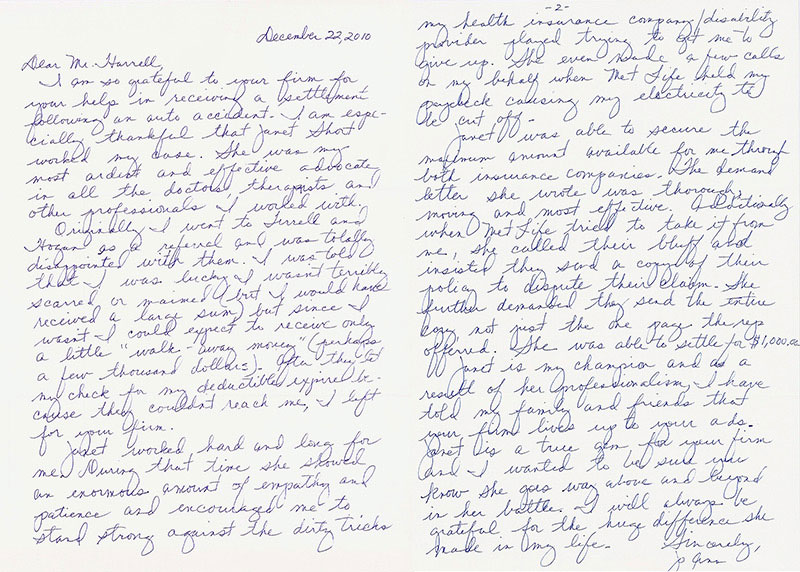 December 22, 2010
Dear Mr. Harrell,
I am so grateful to your firm for
your help in receiving a settlement
following an auto accident. I am espe-
cially thankful that Janet Short
worked my case. She was my
most ardent and effective advocate
in all the doctors therapists and
other professionals I worked with.
Originally I went to Terrell and
Hogan as a referral and was totally
disappointed with them. I was told
that I was lucky I wasn't terribly
scarred or maimed (but I would have
received a large sum) but since I
wasn't I could expect to receive only
a little "walk-away money" (perhaps
a few thousand dollars). After they let
my check for my deductible expire be-
cause they couldn't reach me, I left
for your firm.
Janet worked hard and long for
me. During that time she showed
an enormous amount of empathy and
patience and encouraged me to
stand strong against the dirty tricks
-2-
my health insurance company/disability
provider played trying to get me to
give up. She even made a few calls
on my behalf when Met Life held my
paycheck causing my electricity to
be cut off.
Janet was able to secure the
maximum amount available for me through
both insurance companies. The demand
letter she wrote was thorough,
moving and most effective. Additionally
when Met Life tried to take it from
me, she called their bluff and
insisted they send a copy of their
policy to dispute their claim. She
further demanded they send the entire
copy not just the one page the rep
offered. She was able to settle for $1,000.00
Janet is my champion and as a
result of her professionalism, I have
told my family and friends that
your firm lives up to your ads.
Janet is a true gem for your firm
and I wanted to be sure you
know she goes way above and beyond
in her battle. I will always be
grateful for the huge difference she
made in my life.
Sincerely,
Jo Ann